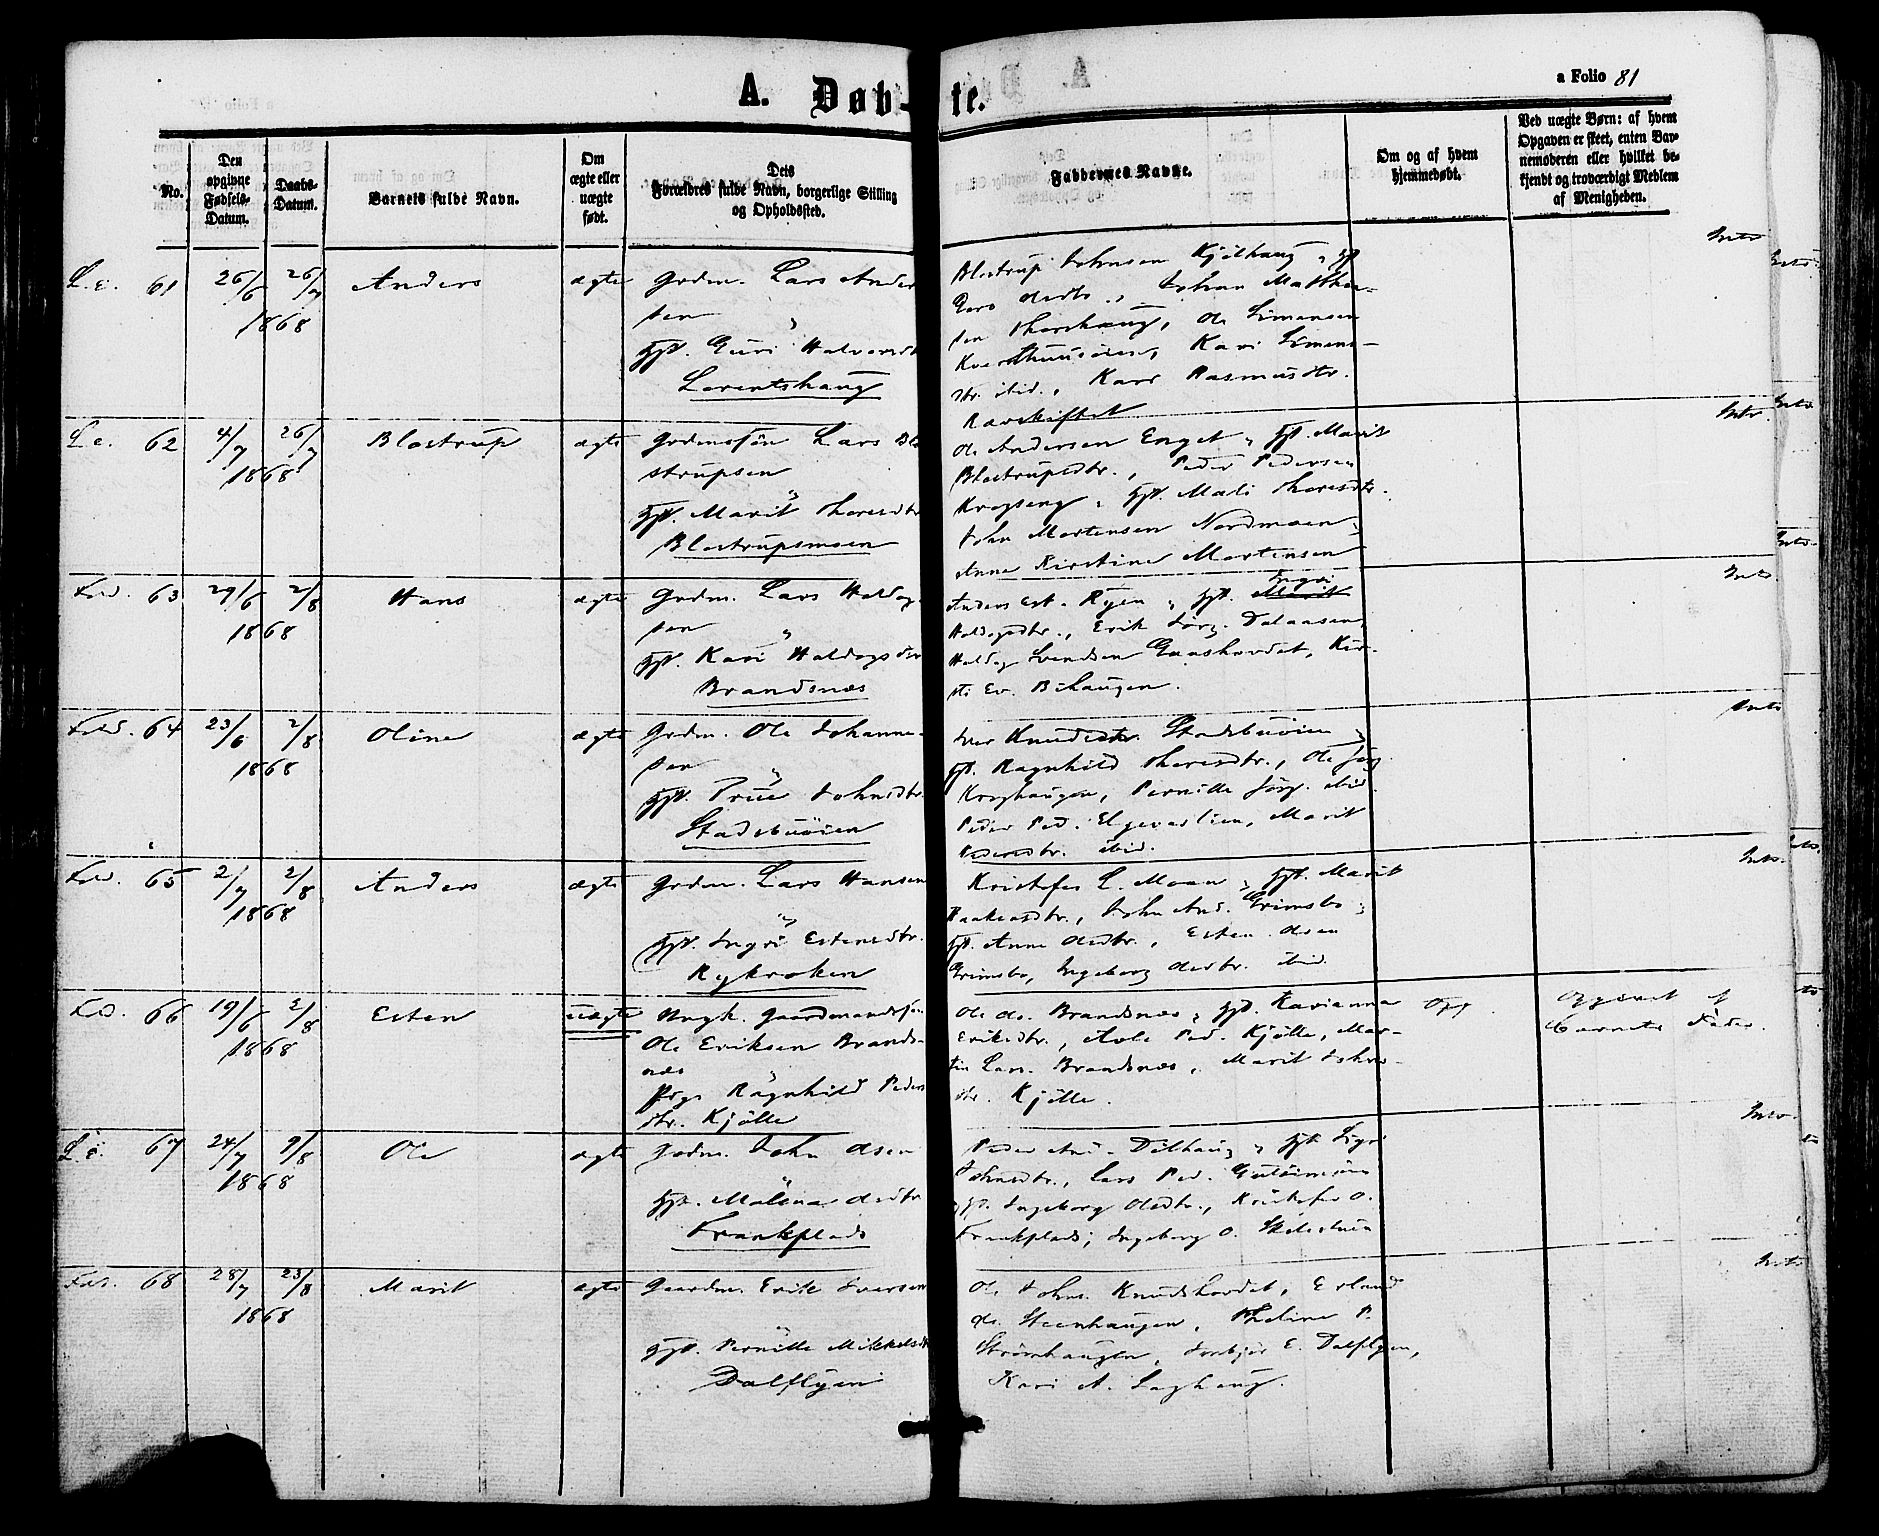 A. Døbte.
a Folio 81
No.
Den opgivne Fødsels-Datum.
Daabs-Datum.
Barnets fulde Navn.
Om ægte eller uægte født.
Dets Forældres fulde Navn, borgerlige Stilling og Opholdssted.
Faddernes Navne.
Om og af hvem hjemmedøbt.
Ved uægte Børn: af hvem Opgaven er skeet, enten Barnemoderen eller hvilket bekjendt og troværdigt Medlem af Menigheden.
61
26/6 26/7
1868
Anders
ægte
Grdm. Lars Ander
sen
Guri Halvorsd
Lorentshaug
Blostrup Johnsen Kjølhaug
Johan Matthe-
sen Thorshaug, Ole Simensen
Kari Simens-
dtr. ibid., Kari Rasmusdtr.
62
4/7 26/7
1868
Blostrup
ægte
Grdmssøn Lars Blo
strupsen
Marit Thoresdtr
Blostrupsmoen
Ole Andersen Enget, Marit
Blostrupsdtr., Peder Pedersen
Krogseng, Mali Thoresdtr.
John Mortensen Nordmoen
Anne Kirstine Mortensen
63
29/6 2/8
1868
Hans
ægte
Grdm. Lars Haldog
sen
Kari Haldogsdtr
Brandsnæs
Anders Est. Ryen, Ingri
Haldogsdtr., Erik Jørg. Dalaasen,
Haldog Svendsen Gaashovdet, Kir-
sti Ev. Bihaugen.
64
23/6 2/8
1868
Oline
ægte
Grdm. Ole Johanne-
sen
Johnsdtr.
Stadsbuøien
Iver Knudsen Stadsbuøien
Ragnhild Thoresdtr., Ole Jørg.
Kroghaugen, Pernille Jørg. ibid.
Peder Ped. Elgevaslien, Marit
Pedersdtr. ibid.
65
2/7 2/8
1868
Anders
ægte
Grdm. Lars Hansen
Ingri Estensdtr.
Rykroken
Kristofer L. Moen, Marit
John And. Grimsbo
Anne Olsdtr., Esten Olsen
Grimsbo, Ingeborg Olsdtr. ibid.
66
19/6 2/8
1868
Esten
uægte
Ungk. Gaardmandssøn
Ole Eriksen Brands-
næs
Pige Ragnhild Peders
dtr. Kjølle
Ole Brandsnæs, Karianna
Eriksdtr., Ped. Kjølle, Mar-
tin Lars. Brandsnæs, Marit Johns-
dtr. Kjølle.
Opgivet af
Barnets Fader.
67
24/7 9/8
1868
Ole
ægte
Grdm. John Olsen
Malena Olsdtr
Frankplads
Peder And. Dølhaug
Johnsdtr., Lars Ped.
Ingeborg Olsdtr., Kristofer O.
Frankplads, Ingeborg O.
68
28/7 23/8
1868
Marit
ægte
Gaardm. Erik Iversen
Pernille Mikkelsd
Dalflyen
Ole Johns. Knudshovdet, Erland
Ol. Steenhaugen, Theline P.
Strømhaugen, E. Dalflyen,
Kari A. Laghaug.